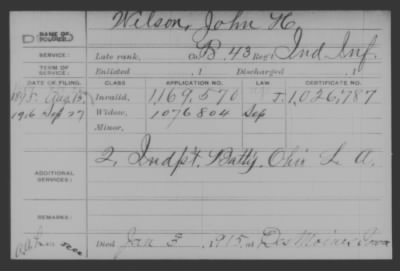 Wilson, John H.
NAME OF SOLDIER:
SERVICE: Late rank, Co. B, 43 Reg't Ind Inf.
TERM OF SERVICE: Enlisted , 1 Discharged , 1
DATE OF FILING. CLASS. APPLICATION NO. LAW. CERTIFICATE NO.
1895 Aug Invalid, 1,169,570 J. 1,026,787
1916 Sep 27 Widow, 1076804 Sep
Minor,
2, Ind'p't. Batt'y. Ohio L A.
ADDITIONAL SERVICES:
REMARKS:
Died Jan 5, 1915, at Des Moines Iowa